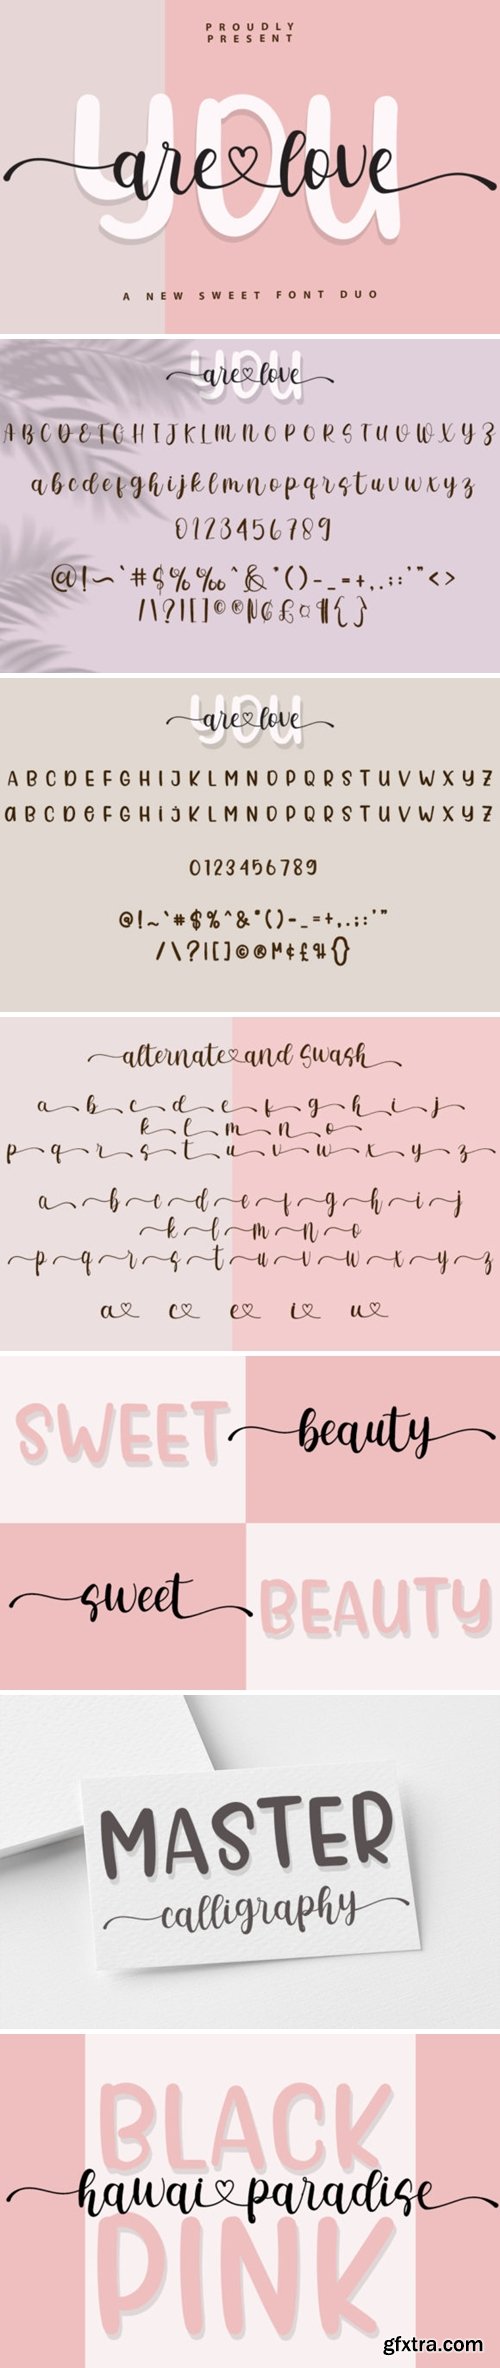 PROUDLY
PRESENT
YOU
are love
A NEW SWEET FONT DUO
YOU
are love
A B C D E F G H I J K L M N O P Q R S T U V W X Y Z
a b c d e f g h i j k l m n o p q r s t u v w x y z
0 1 2 3 4 5 6 7 8 9
@ ! ~ ` # $ % ‰ ^ & * ( ) - _ = + , . ; : ' " < >
/ \ ? | [ ] © ® ¢ £ ¤ ¶ { }
YOU
are love
A B C D E F G H I J K L M N O P Q R S T U V W X Y Z
a B C D e F G H i J K L M N O P Q R S T U V W X Y Z
0 1 2 3 4 5 6 7 8 9
@ ! ~ ` # $ % ^ & * ( ) - _ = + , . ; : ' "
/ \ ? | [ ] © ® ¢ £ { }
alternate and swash
a b c d e f g h i j
k l m n o
p q r s t u v w x y z
a b c d e f g h i j
k l m n o
p q r s t u v w x y z
a c e i u
SWEET beauty
sweet BEAUTY
MASTER
calligraphy
BLACK
hawai paradise
PINK
gfxtra.com